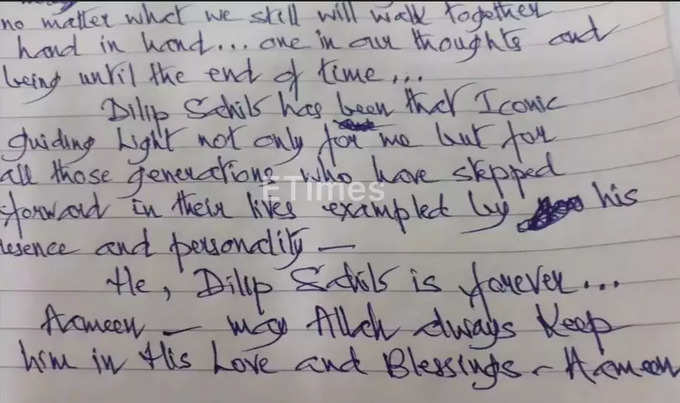 no matter what we still will walk together
hand in hand... one in our thoughts and
being until the end of time...
Dilip Sahib has been that Iconic
guiding Light not only for me but for
all those generations who have stepped
ETimes
forward in their lives exampled by his
and personality —
He, Dilip Sahib is forever...
Aameen — may Allah always Keep
him in His Love and Blessings - Aameen